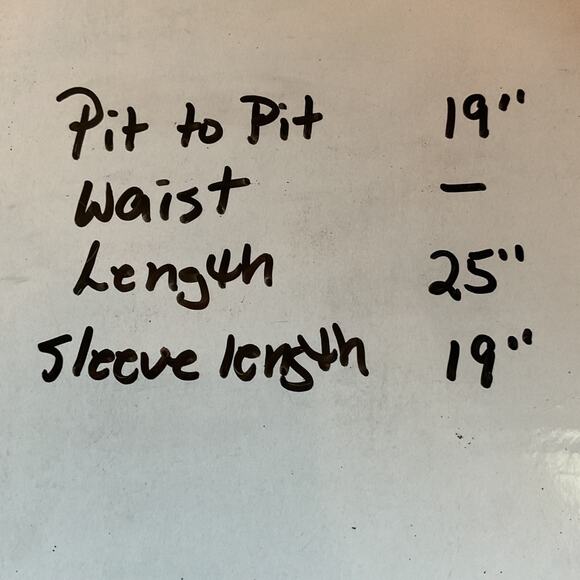 Pit to Pit 19"
Waist —
Length 25"
Sleeve length 19"